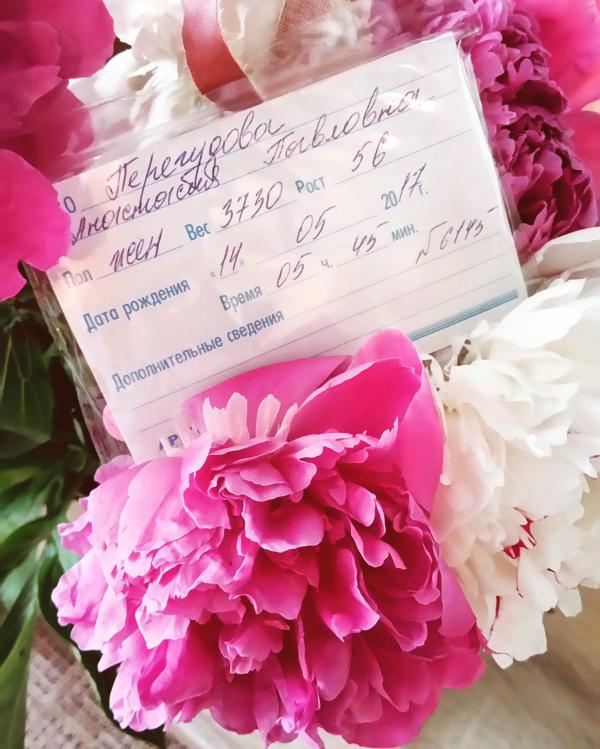 О Перегудова
Анастасия Павловна
Пол жен Вес 3730 Рост 56
Дата рождения "14 05 2017г.
Время 05 ч. 45 мин. №6145
Дополнительные сведения